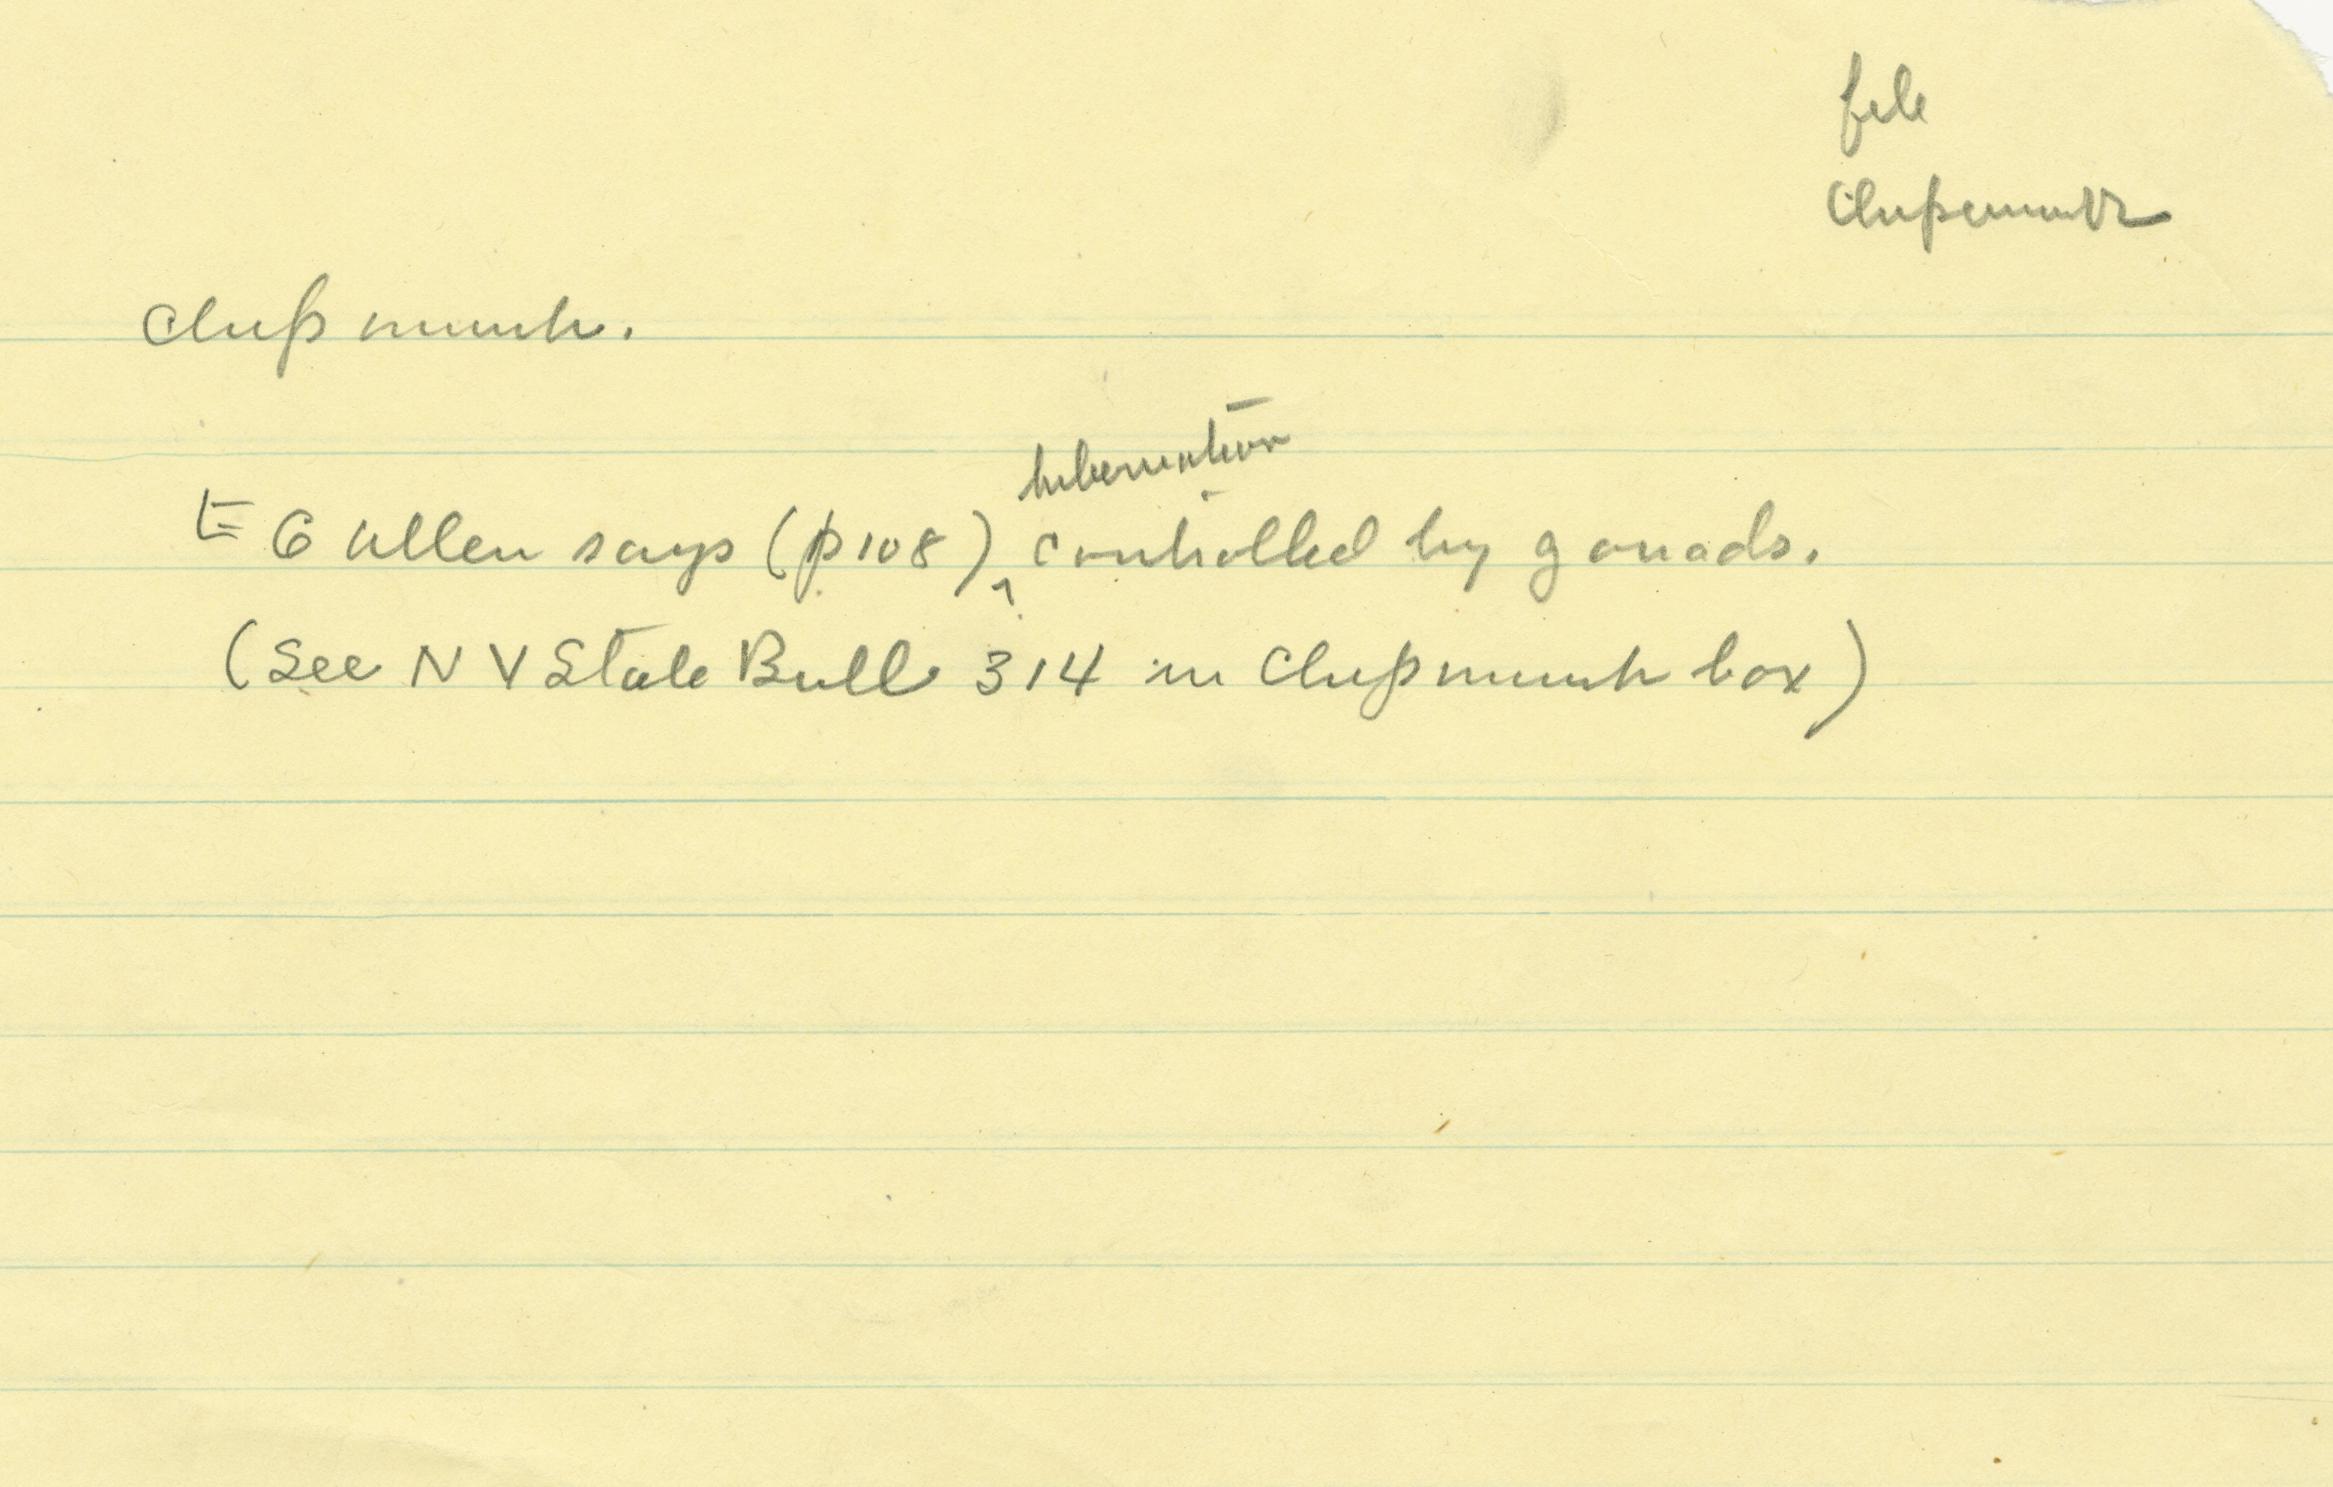 file
Chipmunk
Chipmunk.
hibernation
E G Allen says (p 108) ^ controlled by gonads.
(See N Y State Bull 314 in Chipmunk box)